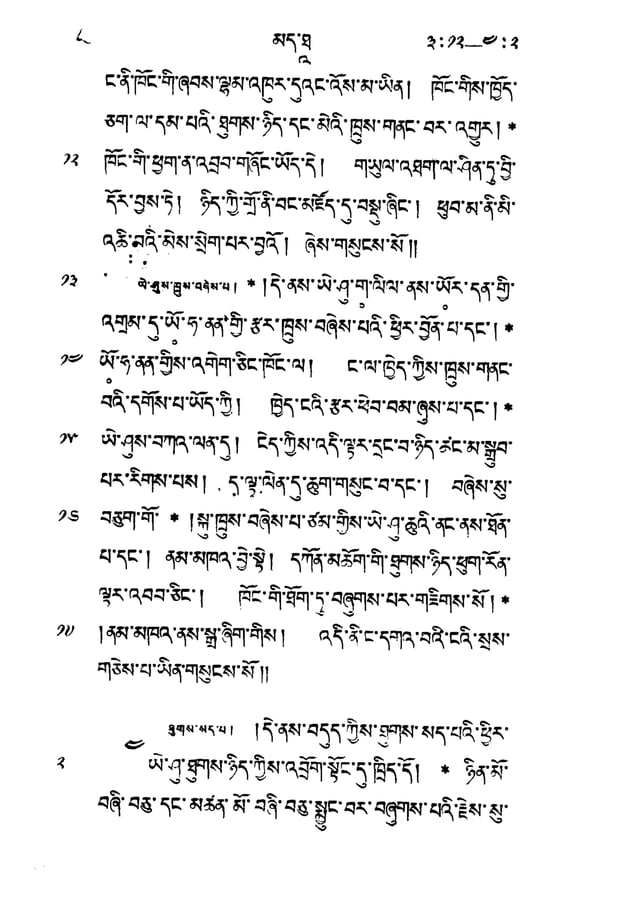 ༨ མད་ཐཱ ༣:༡༢—༤:༢
ང་ནི་ཁོང་གི་ཞབས་ལྷམ་འཁུར་དུའང་འོས་མ་ཡིན། ཁོང་གིས་ཁྱོད་
ཅག་ལ་དམ་པའི་ཐུགས་ཉིད་དང་མེའི་ཁྲུས་གནང་བར་འགྱུར། *
༡༢ ཁོང་གི་ཕྱག་ན་འབྲབ་གཞོང་ཡོད་དེ། གཡུལ་འཐག་ལ་ཤིན་ཏུ་བྱི་
དོར་བྱས་ཏེ། ཉིད་ཀྱི་གྲོ་ནི་བང་མཛོད་དུ་བསྡུ་ཞིང་། ཕུབ་མ་ནི་མི་
འཆི་བའི་མེས་སྲེག་པར་བྱའོ། ཞེས་གསུངས་སོ།།
༡༣ ཡེ་ཤུས་ཁྲུས་བཞེས་པ། * །དེ་ནས་ཡེ་ཤུ་གཱ་ལིལ་ནས་ཡོར་དན་གྱི་
འགྲམ་དུ་ཡོ་ཧ་ནན་གྱི་རྩར་ཁྲུས་བཞེས་པའི་ཕྱིར་བྱོན་པ་དང་། *
༡༤ ཡོ་ཧ་ནན་གྱིས་འགེག་ཅིང་ཁོང་ལ། ང་ལ་ཁྱེད་ཀྱིས་ཁྲུས་གནང་
བའི་དགོས་པ་ཡོད་ཀྱི། ཁྱེད་ངའི་རྩར་ཕེབ་བམ་ཞུས་པ་དང་། *
༡༥ ཡེ་ཤུས་བཀའ་ལན་དུ། ངེད་ཀྱིས་འདི་ལྟར་དྲང་བ་ཉིད་ཚང་མ་སྒྲུབ་
པར་རིགས་པས། ད་ལྟ་ལེན་དུ་ཆུག་གསུང་བ་དང་། བཞེས་སུ་
༡༦ བཅུག་གོ་ * །སྐུ་ཁྲུས་བཞེས་པ་ཙམ་གྱིས་ཡེ་ཤུ་ཆུའི་ནང་ནས་ཐོན་
པ་དང་། ནམ་མཁའ་བྱེ་སྟེ། དཀོན་མཆོག་གི་ཐུགས་ཉིད་ཕུག་རོན་
ལྟར་འབབ་ཅིང་། ཁོང་གི་ཐོག་ཏུ་བཞུགས་པར་གཟིགས་སོ། *
༡༧ །ནམ་མཁའ་ནས་སྒྲ་ཞིག་གིས། འདི་ནི་ང་དགའ་བའི་ངའི་སྲས་
གཅེས་པ་ཡིན་གསུངས་སོ།།
ཐུགས་སད་པ། །དེ་ནས་བདུད་ཀྱིས་ཐུགས་སད་པའི་ཕྱིར་
༤
༢ ཡེ་ཤུ་ཐུགས་ཉིད་ཀྱིས་འབྲོག་སྟོང་དུ་ཁྲིད་དོ། * ཉིན་མོ་
བཞི་བཅུ་དང་མཚན་མོ་བཞི་བཅུ་སྨྱུང་བར་བཞུགས་པའི་རྗེས་སུ་